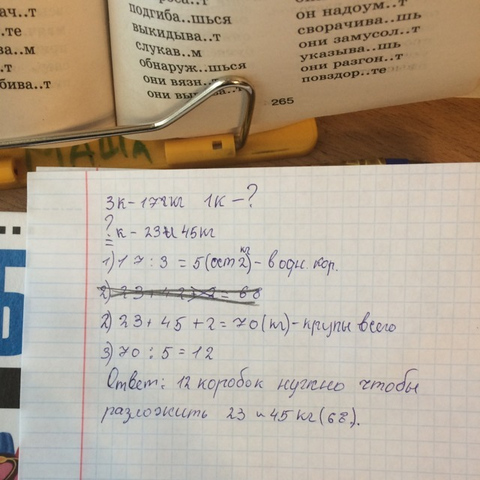 подгиба..шься
выкидыва..т
слукав..м
обнаруж..шься
они вязн..
он надоум..т
сворачива..шь
они замусол..т
указыва..шь
они разгон..т
повздор..те
265
МАША
3к - 17кг 1к - ?
? к - 23и 45кг
1) 17 : 3 = 5(ост 2кг) - в одн. кор.
2) 23 + 45 + 2 = 70(кг) - крупы всего
3) 70 : 5 = 12
Ответ: 12 коробок нужно чтобы
разложить 23 и 45 кг (68).